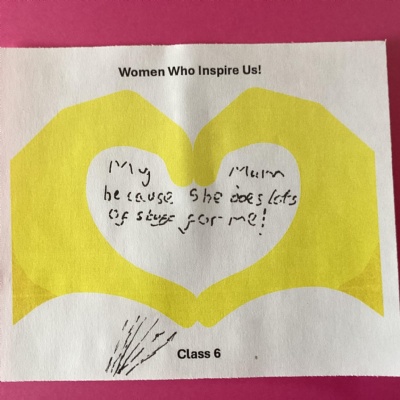 Women Who Inspire Us!
My Mum
because she does lots
of stuff for me!
Class 6